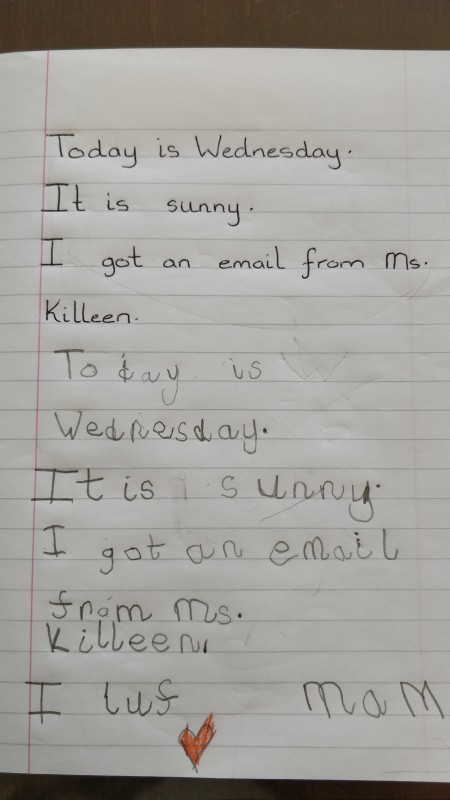 Today is Wednesday.
It is sunny.
I got an email from Ms.
Killeen.
Today is
Wednesday.
It is sunny.
I got an email
from Ms.
Killeen.
I luf mam